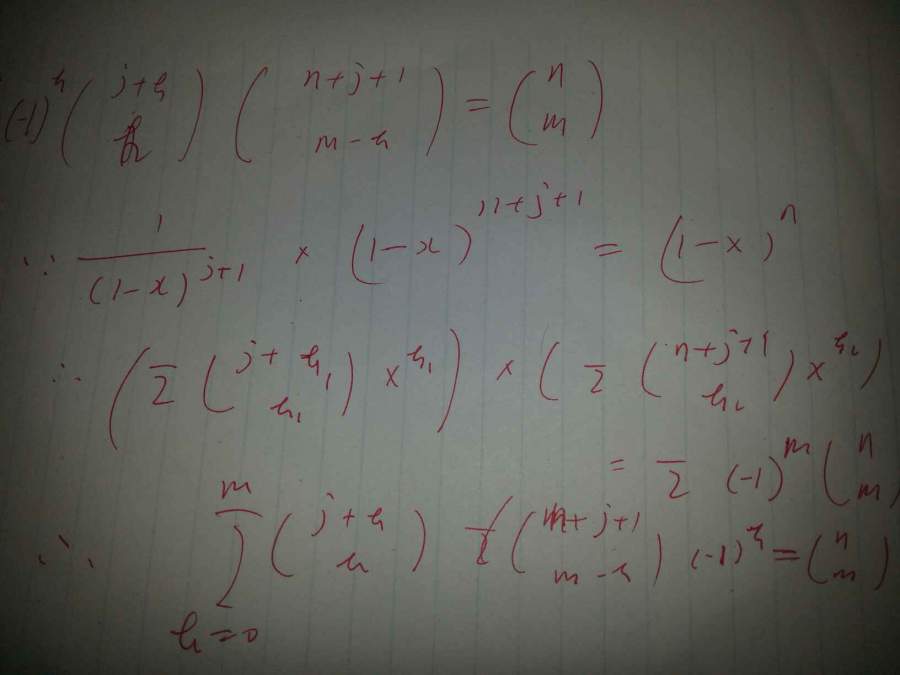 (-1)^k (j+k k) (n+j+1 m-k) = (n m)
∵ 1/(1-x)^{j+1} × (1-x)^{n+j+1} = (1-x)^n
∴ (Σ (j+k₁ k₁) x^{k₁}) × (Σ (n+j+1 k₂) x^{k₂})
= Σ (-1)^m (n m)
∴ Σ_{k=0}^{m} (j+k k) (n+j+1 m-k) (-1)^k = (n m)